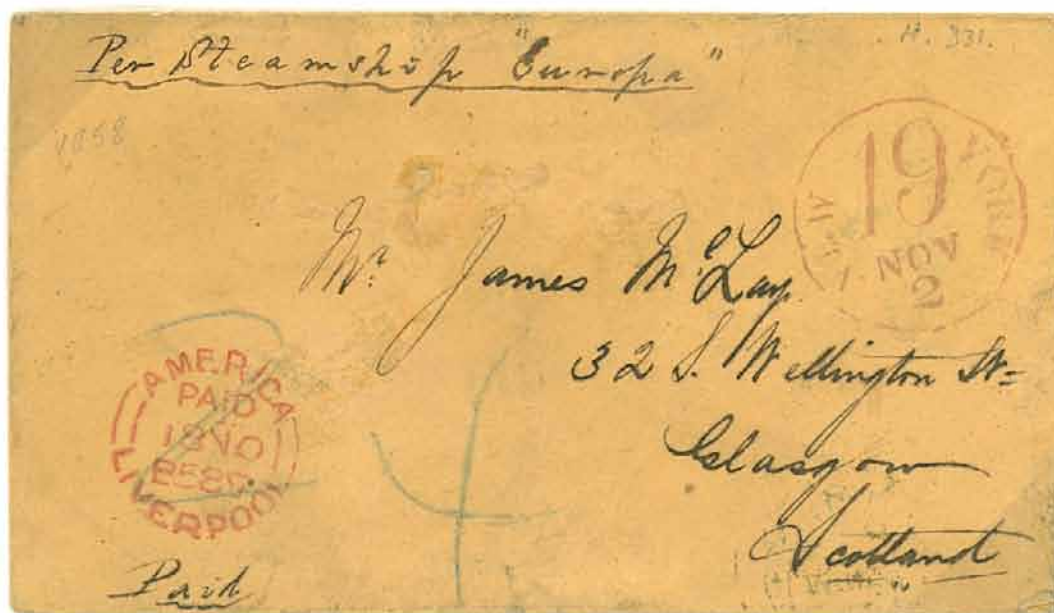 Per Steamship "Europa"
H. 331.
1858
NEW YORK
19
NOV
2
Mr. James McLay
32 S. Wellington St=
Glasgow
Scotland
AMERICA
PAID
LIVERPOOL
4
Paid